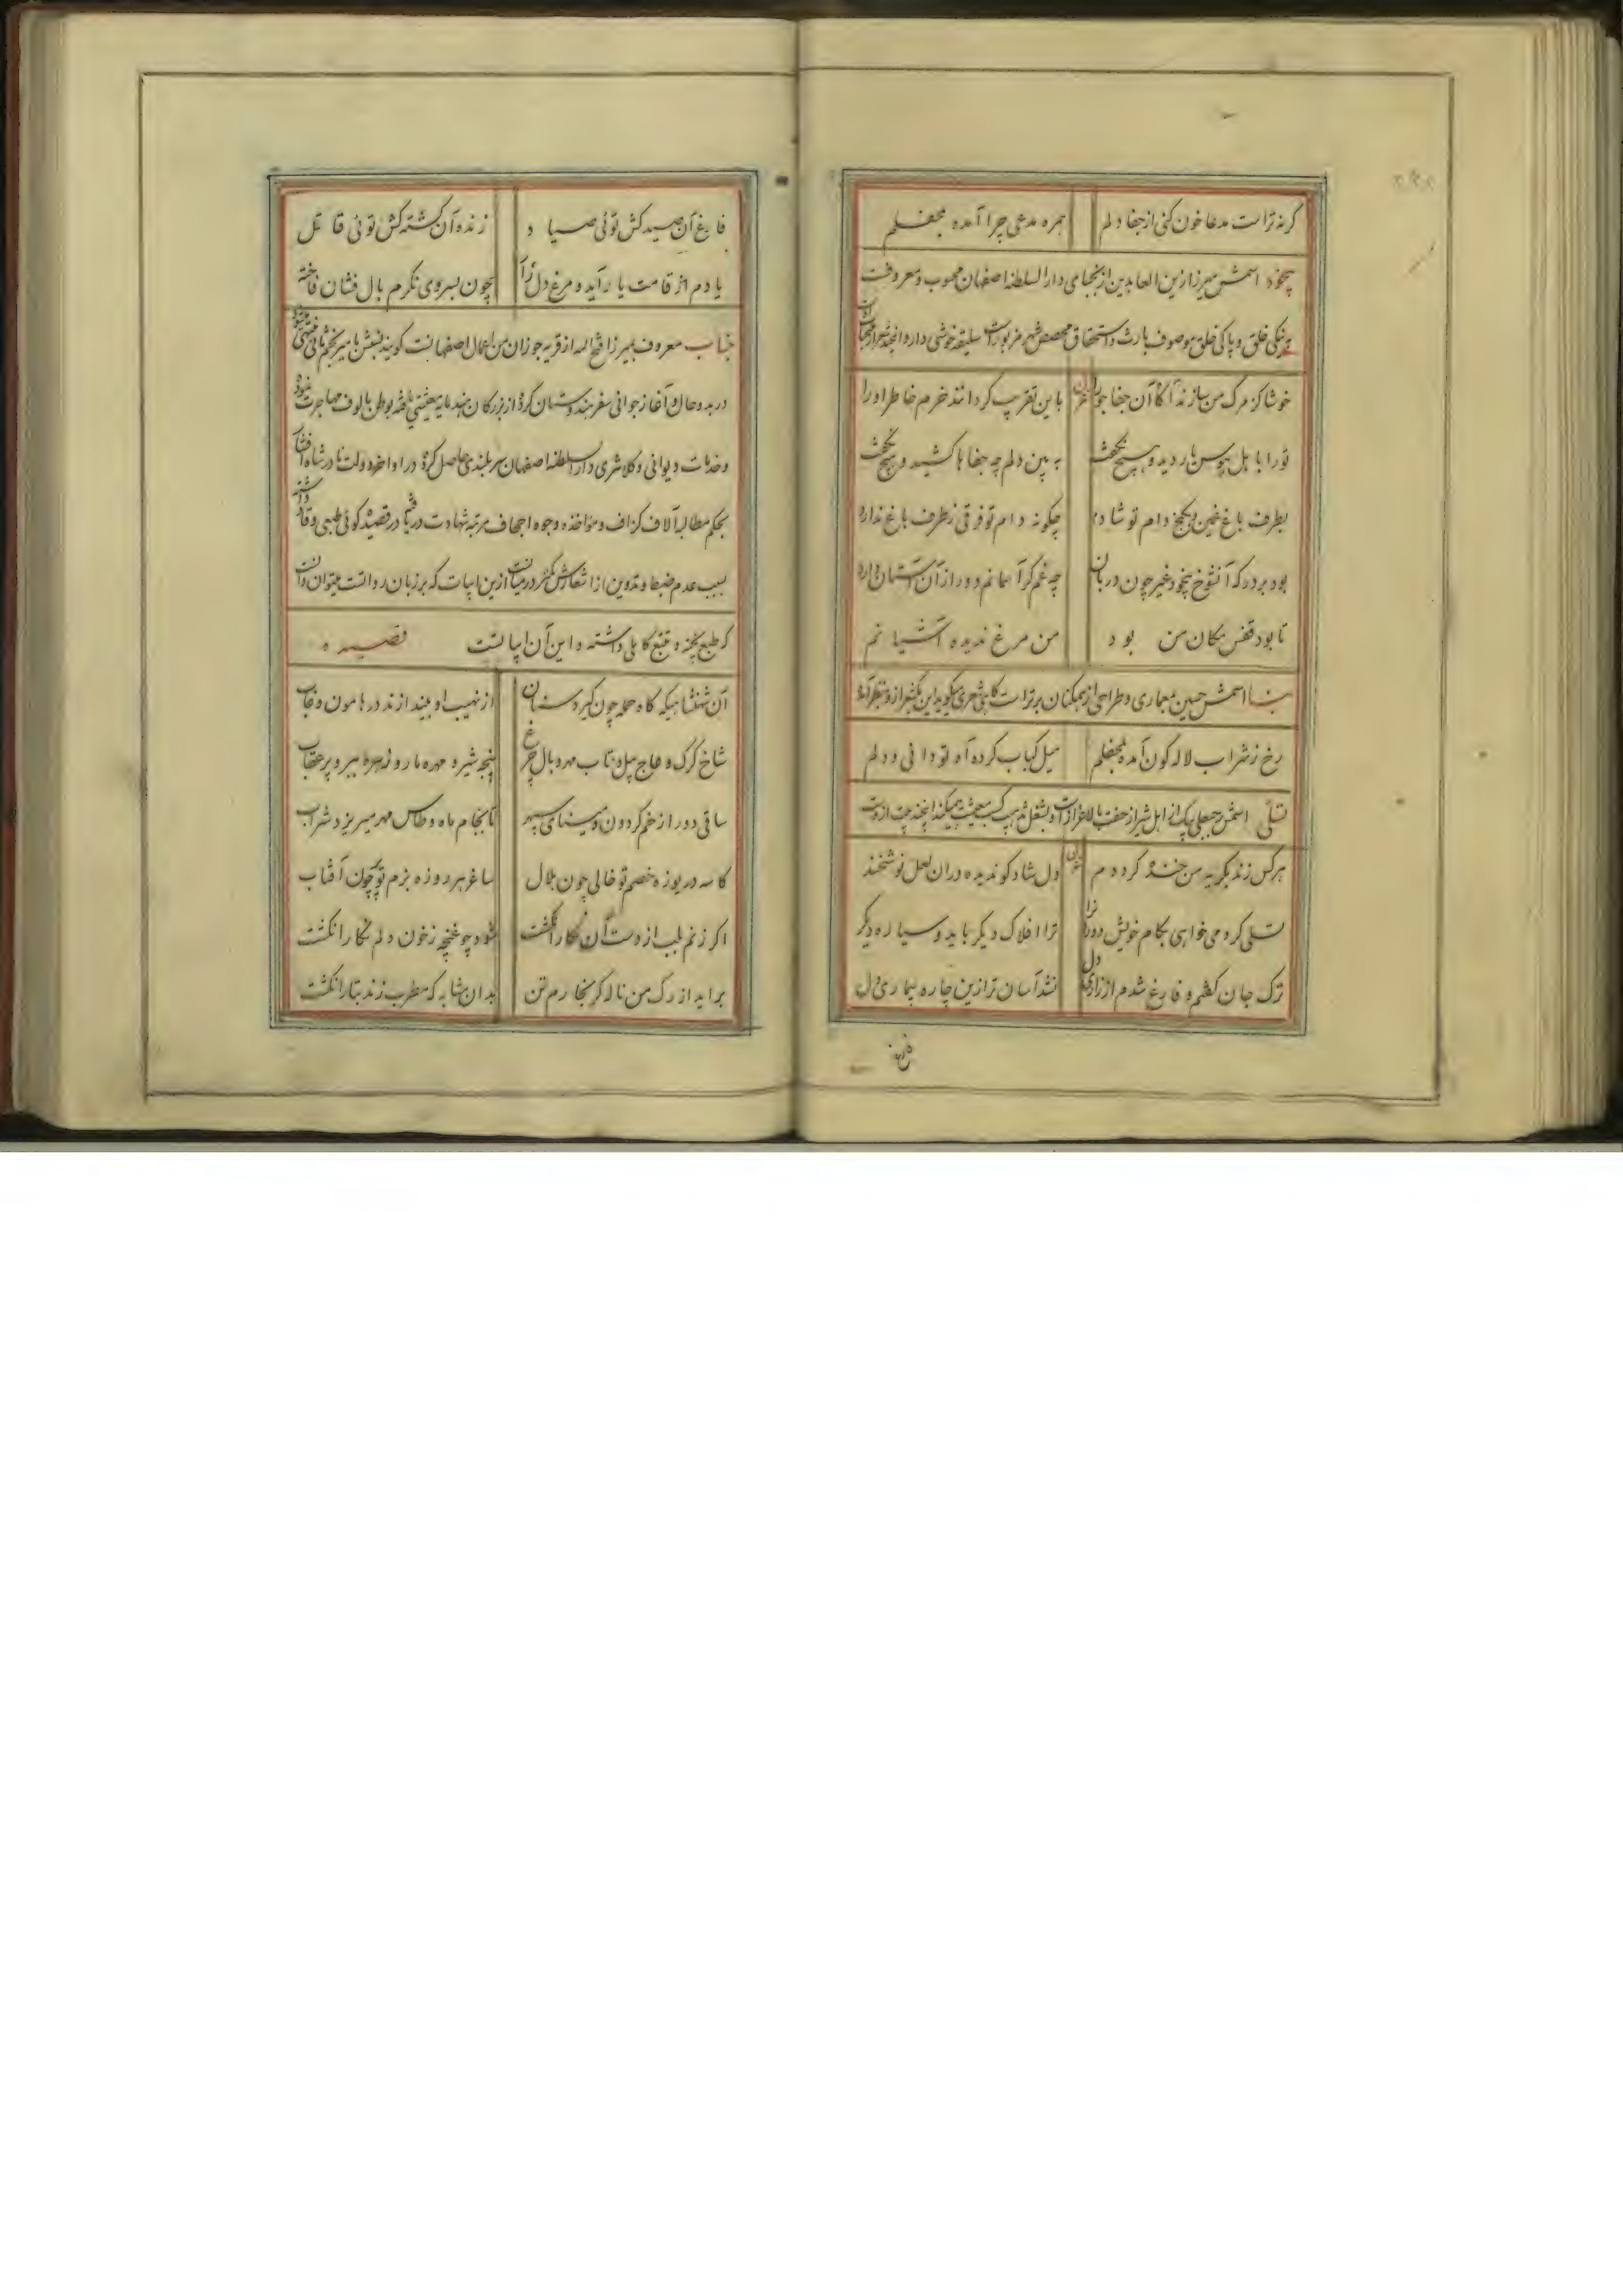 گرنه تراست مدعا خون کنی از جفا دلم همره مدعی چرا آمده بمحفلم
بیخود اسمش میرزا زین العابدین از نجبای دارالسلطنه اصفهان محسوب و معروفست
به نیکی خلق و پاکی خلق موصوف بارث و استحقاق شهر مزبور است سلیقه خوشی دارد این چند شعر از
خوشا کز مرگ من سازند آگاه آن جفا جو را باین تقریب گردانند خرم خاطر او را
تو را با اهل هوس یار دید و هیچ نگفت به بین دلم چه جفاها کشید و هیچ نگفت
بطرف باغ غمین و بکنج دام تو شادم چگونه دام تو فرقی ز طرف باغ ندارد
بود بر در که آنشوخ بیخود غیر چون دربان چه غم گر آسمانم دور از آن آستان دارد
تا بود قفس مکان من بود من مرغ ندیده آشیانم
اسمش حسین معماری و طراحی از همکنان برتر است گاهی شعری میگوید این یکشعر ازو بنظر آمد
رخ ز شراب لاله گون آمده بمحفلم میل کباب کرده تو دانی و دلم
تسلی اسمش از اهل شیراز کسب معیشت میکند این چند بیت ازوست
هرکس زند بگریه من خنده کردم غزل دل شاد گو ندیده در آن لعل نوشخند
تسلی گر می خواهی بکام خویش دوران را ترا افلاک دیگر باید و سیاره دیگر
ترک جان گفتم و فارغ شدم از زاری دل نشد آسان تر ازین چاره بیماری دل
فارغ
فارغ آن صید کش توئی صیاد زنده آن کشته کش توئی قاتل
یادم از قامت یار آید و مرغ دل زار چون بسروی نگرم بال فشان فاخته
جناب معروف بمیرزا فتح الله از قریه جوزان من اعمال اصفهانست گویند نسبش بامیر نجم ثانی منتهی میشود
در بدو حال و آغاز جوانی سفر هندوستان کرده از بزرگان هند یافته بوطن مالوف مهاجرت نمود
و خدمات دیوانی و کلانتری دارالسلطنه اصفهان سربلندی حاصل کرده در اواخر دولت نادرشاه افشار
بحکم مطالبه آلاف گزاف و مؤاخذه وجوه اجحاف مرتبه شهادت دریافت در قصیده گوئی طبعی وقاد داشته
بسبب عدم ضبط و تدوین از اشعارش کمتر در میانست ازین ابیات که بر زبان رواتست میتوان دانست
که طبع پخته و تتبع کاملی داشته و این آن ابیاتست قصیده
آن شهنشاهیکه گاه حمله چون گیرد سنان از نهیب او بیندازند در هامون و غاب
شاخ کرگ و عاج پیل و تاب مهره بال چرغ پنجه شیر و مهره مار و زهره ببر و پر عقاب
ساقی دور از خم گردون و مینای سپهر تا بجام ماه و طاس مهر میریزد شراب
کاسه دریوزه خصم تو خالی چون هلال ساغر هر روزه بزم تو پر چون آفتاب
اگر زنم بلب از دست آن نگار انگشت شود چو غنچه ز خون دلم نگار انگشت
برآید از رگ من ناله گر بخارم تن بدان مشابه که مطرب زند بتار انگشت